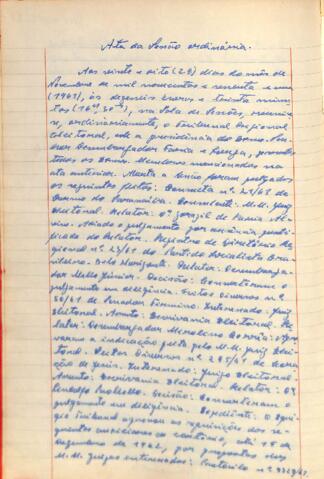 Ata da Sessão ordinária.
Aos vinte e oito (28) dias do mês de
Novembro de mil novecentos e sessenta e um
(1961), às dezesseis horas e trinta minu-
tos (16hs 30m), na Sala de Sessões, reuniu-
se, ordinariamente, o Tribunal Regional
Eleitoral, sob a presidência do Exmo. Se-
nhor Desembargador Faria e Souza, presentes
os Exmos. Membros mencionados na
ata anterior. Aberta a sessão foram julgados
os seguintes feitos: Consulta nº 27/61 de
Carmo do Paranaíba. Consulente: M.M. Juiz
Eleitoral. Relator: Dr.
Adiado o julgamento por ausência justi-
ficada do Relator. Registro de Diretório Re-
gional nº 23/61 do Partido Socialista Bra-
sileiro. Belo Horizonte. Relator: Desembarga-
dor Mello Júnior. Decisão: Converteram o
julgamento em diligência. Feitos Diversos nº
50/61 de Senador Firmino. Interessado: Juiz
Eleitoral. Assunto: Escrivania Eleitoral. Re-
lator: Desembargador Merolino Corrêa:
a indicação feita pelo M.M. Juiz Elei-
toral. Feitos Diversos nº 295/61 de
Interessado: Juízo Eleitoral.
Assunto: Escrivania Eleitoral. Relator: Dr.
Decisão: Converteram o
julgamento em diligência. Expediente: O Egré-
gio Tribunal aprovou as requisições dos se-
guintes auxiliares de cartório, até 15 de
Dezembro de 1962, por propostas dos
M.M. Juízes interessados: Protocolo nº 9329/61.